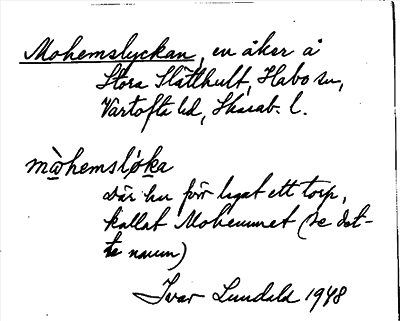 Mohemslyckan, en åker å
Stora Slätthult, Habo sn,
Vartofta hd, Skarab. l.
mòhemsløka
där har förr legat ett torp,
kallat Mohemmet (se det-
ta namn)
Ivar Lundahl 1948